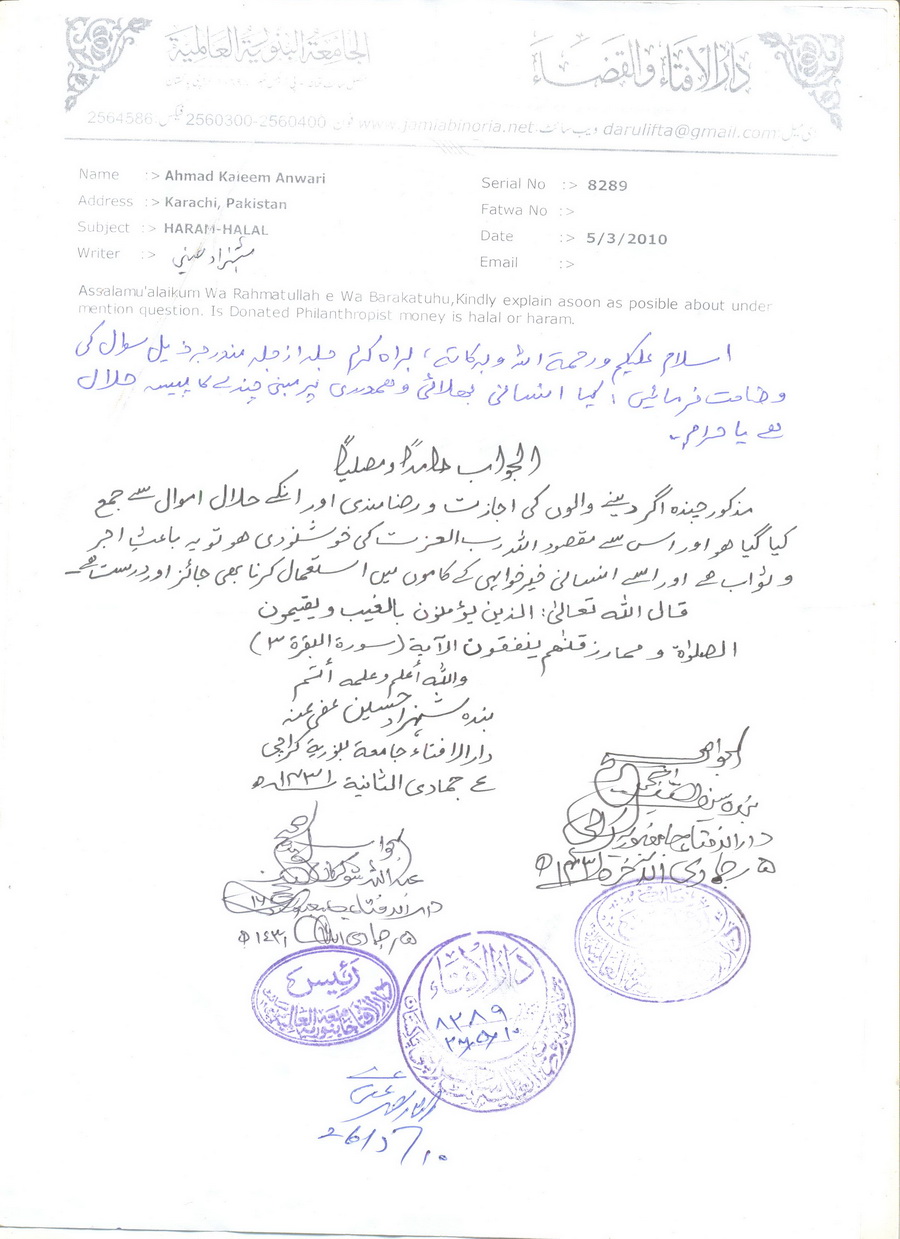 الجامعة البنورية العالمية
دار الافتاء والقضاء
2564586 فیکس 2560300-2560400 فون www.jamiabinoria.net ویب سائٹ darulifta@gmail.com ای میل
Name :> Ahmad Kaleem Anwari
Serial No :> 8289
Address :> Karachi, Pakistan
Fatwa No :>
Subject :> HARAM-HALAL
Date :> 5/3/2010
Writer :> شہزاد حسینی
Email :>
Assalamu'alaikum Wa Rahmatullah e Wa Barakatuhu,Kindly explain asoon as posible about under
mention question. Is Donated Philanthropist money is halal or haram.
اسلام علیکم ورحمۃ اللہ وبرکاتہ، براہ کرم جلد از جلد مندرجہ ذیل سوال کی
وضاحت فرمائیں: کیا انسانی بھلائی و ہمدردی پر مبنی چندے کا پیسہ حلال
ہے یا حرام۔
الجواب حامدًا ومصلیًا
مذکور چندہ اگر دینے والوں کی اجازت و رضامندی اور انکے حلال اموال سے جمع
کیا گیا ہو اور اس سے مقصود اللہ رب العزت کی خوشنودی ہو تو یہ باعثِ اجر
و ثواب ہے اور اسے انسانی خیرخواہی کے کاموں میں استعمال کرنا بھی جائز اور درست ہے۔
قال اللہ تعالیٰ: الذین یؤمنون بالغیب ویقیمون
الصلوٰۃ و ممارزقنٰھم ینفقون الآیة (سورة البقرة ۳)
واللہ أعلم وعلمہ أتم
بندہ شہزاد حسین عفی عنہ
دارالافتاء جامعہ بنوریہ کراچی
٤ جمادی الثانیة ۱۴۳۱ھ
الجواب صحیح
دارالافتاء جامعہ بنوریہ
۵؍جمادی الآخرة ۱۴۳۱ھ
الجواب صحیح
عبداللہ شوکت
دارالافتاء جامعہ بنوریہ
۵؍جمادی ۱۴۳۱ھ
رئیس
دارالافتاء جامعہ بنوریہ العالمیہ
دار الافتاء
۸۲۸۹
26/5/10